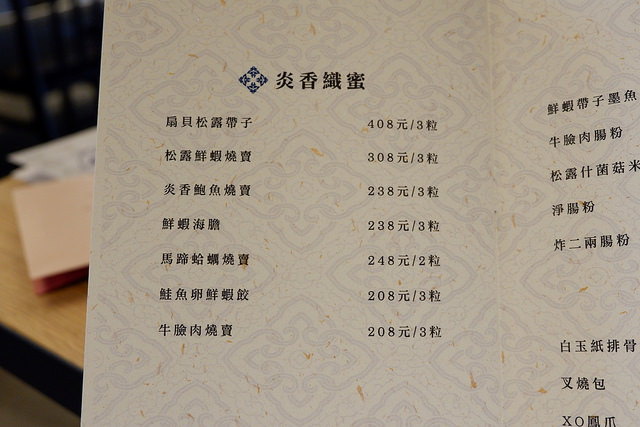 炎香織蜜
扇貝松露帶子 408元/3粒
松露鮮蝦燒賣 308元/3粒
炎香鮑魚燒賣 238元/3粒
鮮蝦海膽 238元/3粒
馬蹄蛤蠣燒賣 248元/2粒
鮭魚卵鮮蝦餃 208元/3粒
牛臉肉燒賣 208元/3粒
鮮蝦帶子墨魚
牛臉肉腸粉
松露什菌菇米
淨腸粉
炸二兩腸粉
白玉紙排骨
叉燒包
XO鳳爪